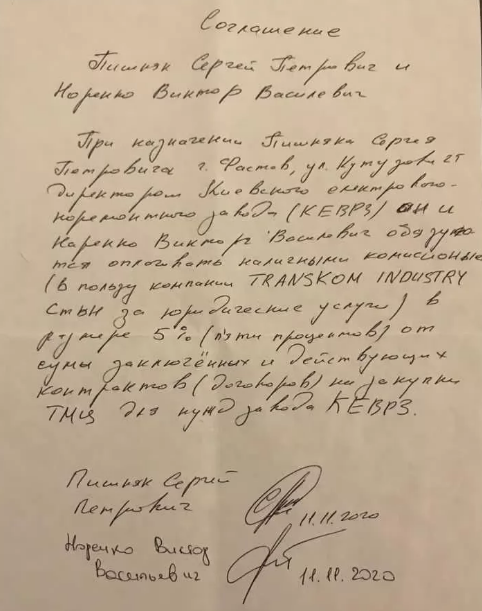 Соглашение
Пишняк Сергей Петрович и
Норенко Виктор Василевич
При назначении Пишняка Сергея
Петровича г. Фастов, ул. Кутузова 25
директором Киевского електроваго-
норемонтного завода (КЕВРЗ) он и
Норенко Виктор Василевич обязую
тся оплачивать наличными комисионые
(в пользу компании TRANSKOM INDUSTRY
за юридические услуги) в
размере 5% (пяти процентов) от
сумы заключённых и действующих
контрактов (договоров) на закупки
ТМЦ для нужд завода КЕВРЗ.
Пишняк Сергий
Петрович 11.11.2020
Норенко Виктор
Васильевич 11.11.2020